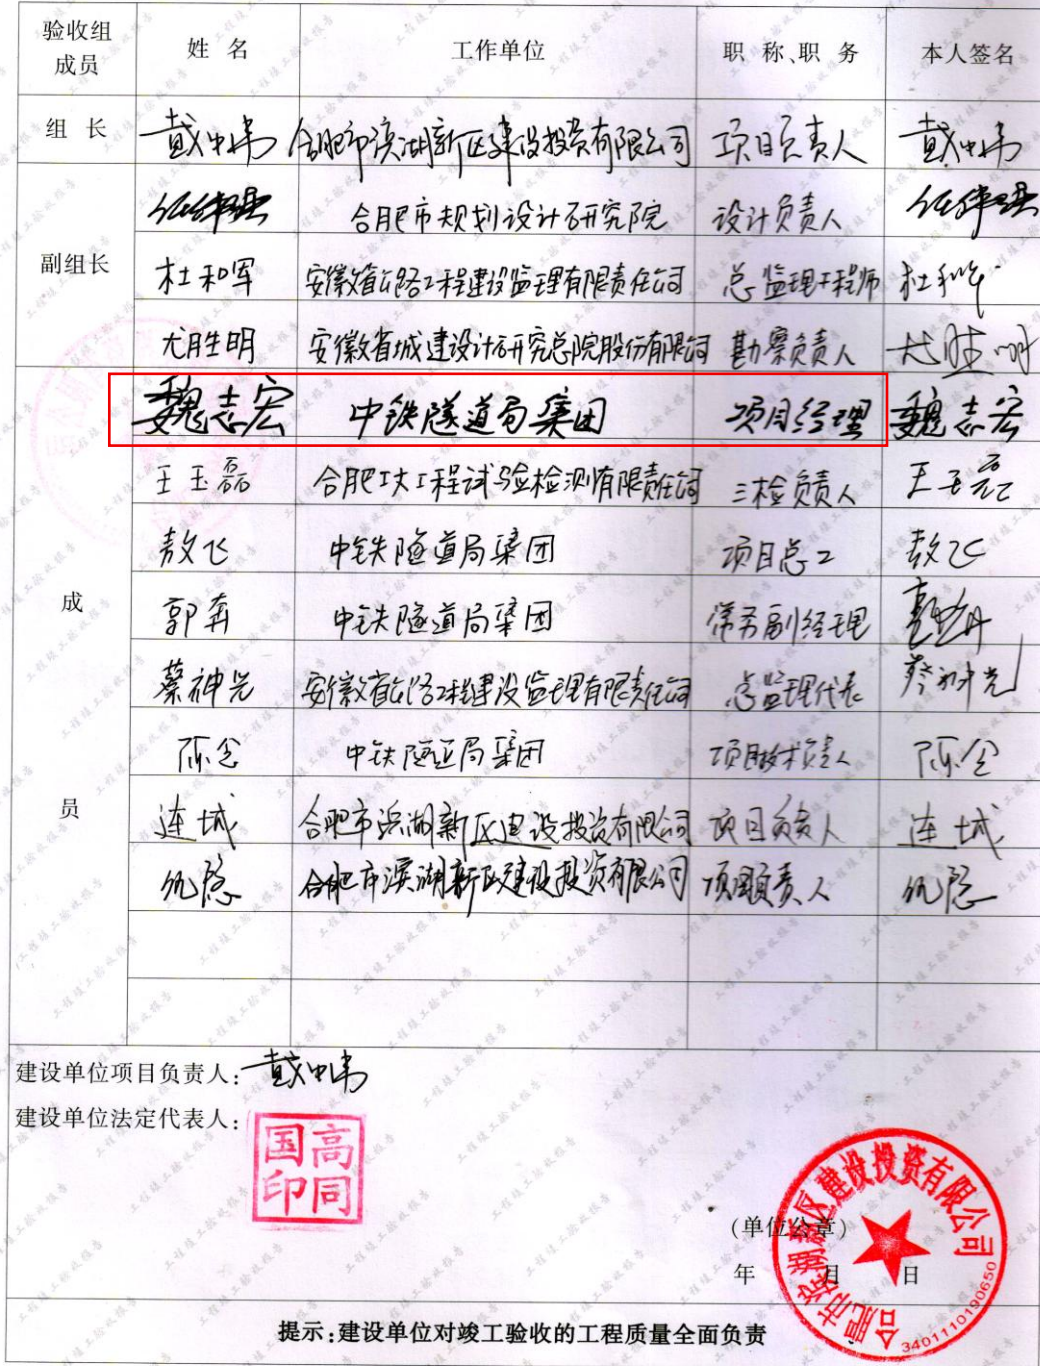 验收组成员 姓 名 工作单位 职 称、职 务 本人签名
组 长 戴中涛 合肥市滨湖新区建设投资有限公司 项目负责人 戴中涛
合肥市规划设计研究院 设计负责人
副组长 杜和军 安徽省公路工程建设监理有限责任公司 总监理工程师 杜和军
尤胜明 安徽省城建设计研究总院股份有限公司 勘察负责人 尤胜明
魏志宏 中铁隧道局集团 项目经理 魏志宏
王玉磊 合肥工大工程试验检测有限责任公司 三检负责人 王玉磊
敖飞 中铁隧道局集团 项目总工 敖飞
成 郭奔 中铁隧道局集团 常务副经理
蔡神光 安徽省公路工程建设监理有限责任公司 总监理代表 蔡神光
陈念 中铁隧道局集团 项目技术负责人 陈念
员 连城 合肥市滨湖新区建设投资有限公司 项目负责人 连城
仇隐 合肥市滨湖新区建设投资有限公司 项目负责人 仇隐
建设单位项目负责人:戴中涛
建设单位法定代表人:
国高
印同
合肥市滨湖新区建设投资有限公司
(单位公章)
年 月 日
3401110190650
提示:建设单位对竣工验收的工程质量全面负责
工程竣工验收报告